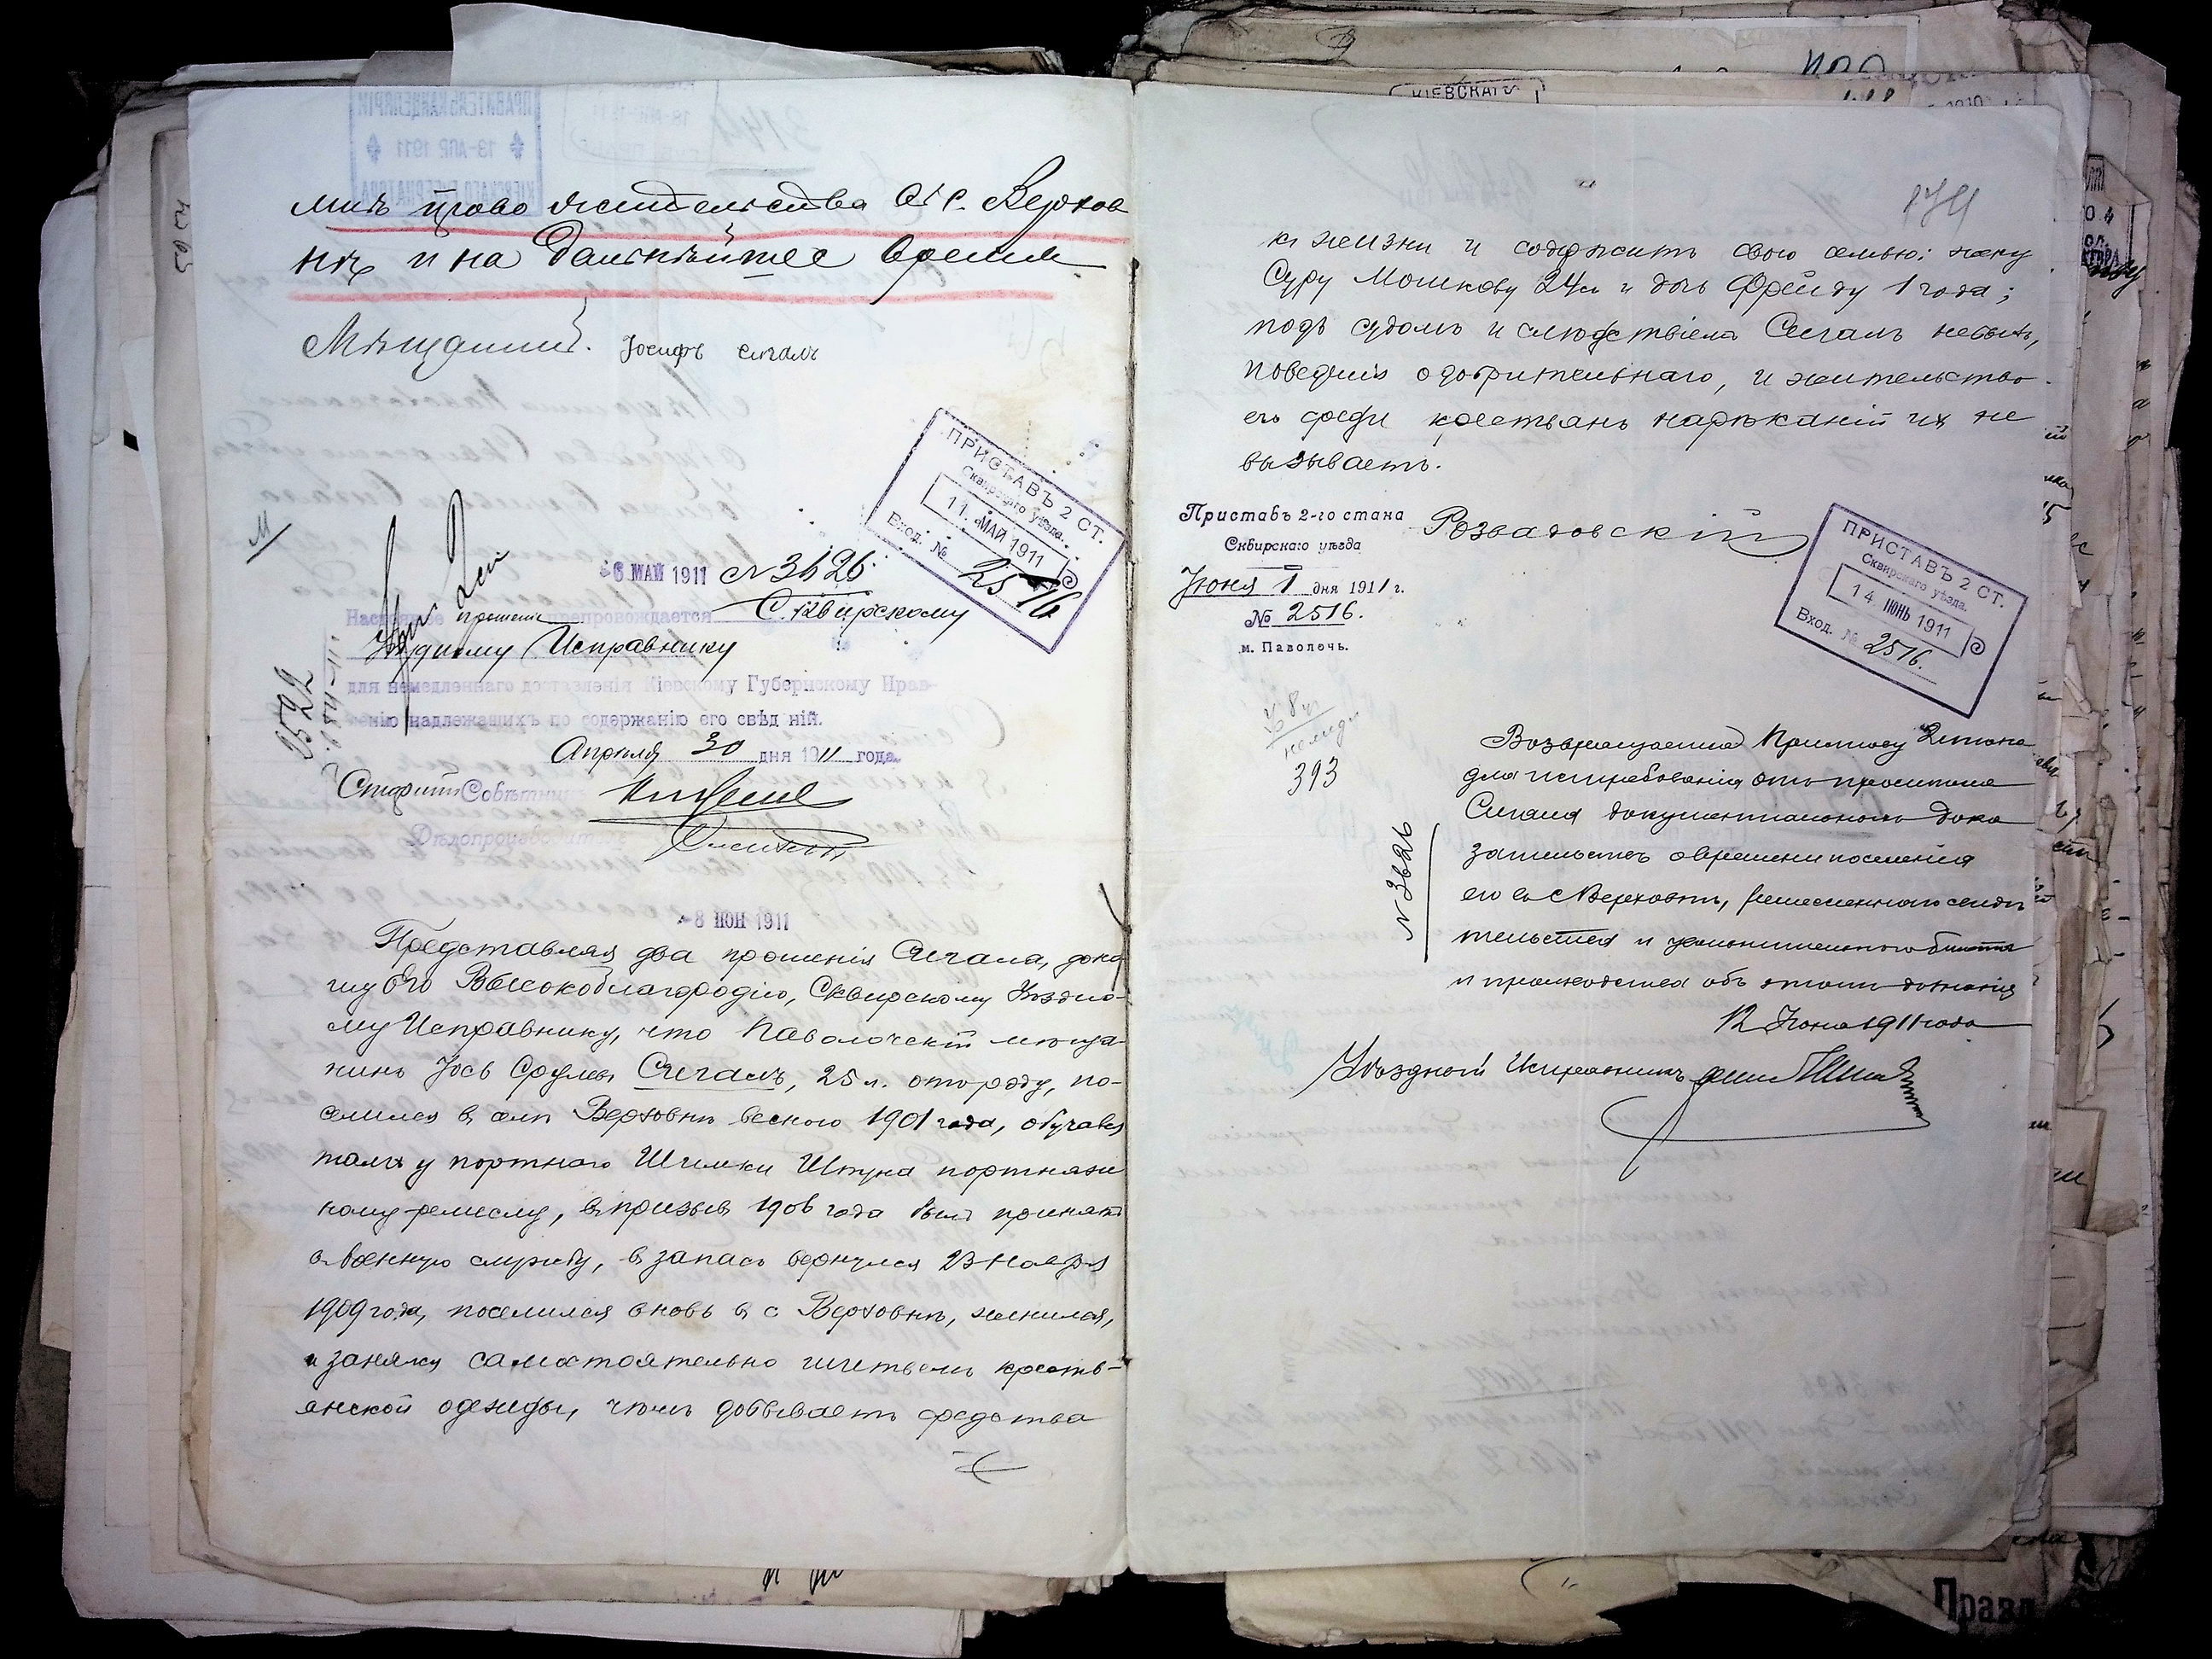 мнѣ право жительства въ с. Верхов
нѣ и на дальнѣйшее время.
Мѣщанинъ. Іосифъ Сигалъ
ПРИСТАВЪ 2 СТ.
Сквирскаго уѣзда.
11. МАЙ 1911
Вход. № 2516
-6 МАЙ 1911 № 3626.
Настоящее прошеніе препровождается Сквирскому
Уѣздному Исправнику
для немедленнаго доставленія Кіевскому Губернскому Прав-
ленію надлежащихъ по содержанію его свѣдѣній.
Апрѣля 30 дня 1911 года.
Старшій Совѣтникъ
Дѣлопроизводитель
9522
-8 ІЮН 1911
Представляя два прошенія Сигала, доно
шу Его Высокоблагородію, Сквирскому Уѣздно-
му Исправнику, что Паволочскій мѣща-
нинъ Іось Срулев Сигалъ, 25 л. отъ роду, по-
селился въ селѣ Верховнѣ весною 1901 года, обучался
тамъ у портнаго Шлемки портняж
ному ремеслу, въ призывъ 1906 года былъ принятъ
в военную службу, въ запасъ вернулся 23 Ноября
1909 года, поселился вновь въ с Верховнѣ, женился,
и занялся самостоятельно шитьемъ кресть-
янской одежды, чѣмъ добываетъ средства
174
КІЕВСКАГО
къ жизни и содержитъ свою семью: жену
Суру Мошкову 24 л и дочь Фрейду 1 года;
подъ судомъ и слѣдствіемъ Сигалъ не былъ,
поведенія одобрительнаго, и жительство
его среди крестьянъ нареканій ихъ не
вызываетъ.
Приставъ 2-го стана Розвадовскій
Сквирскаго уѣзда
Іюня 1 дня 1911 г.
№ 2516.
м. Паволочь.
ПРИСТАВЪ 2 СТ.
Сквирскаго уѣзда.
14 ІЮНЬ 1911
Вход. № 2516.
393
№ 3626
Возвращается Приставу 2 стана
для истребованія отъ просителя
Сигала документальныхъ дока
зательствъ о времени поселенія
его въ с Верховнѣ, ремесленнаго свидѣ
тельства и увольнительнаго билета
и производства объ этомъ дознанія
12 Іюня 1911 года
Уѣздной Исправникъ